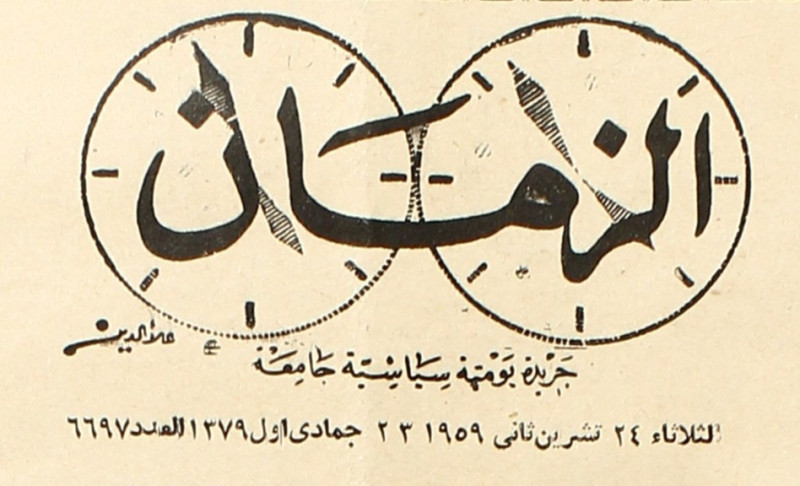 الزمان
علاء الدين
جريدة يومية سياسية جامعة
الثلاثاء ٢٤ تشرين ثاني ١٩٥٩ ٢٣ جمادى اول ١٣٧٩ العدد ٦٦٩٧